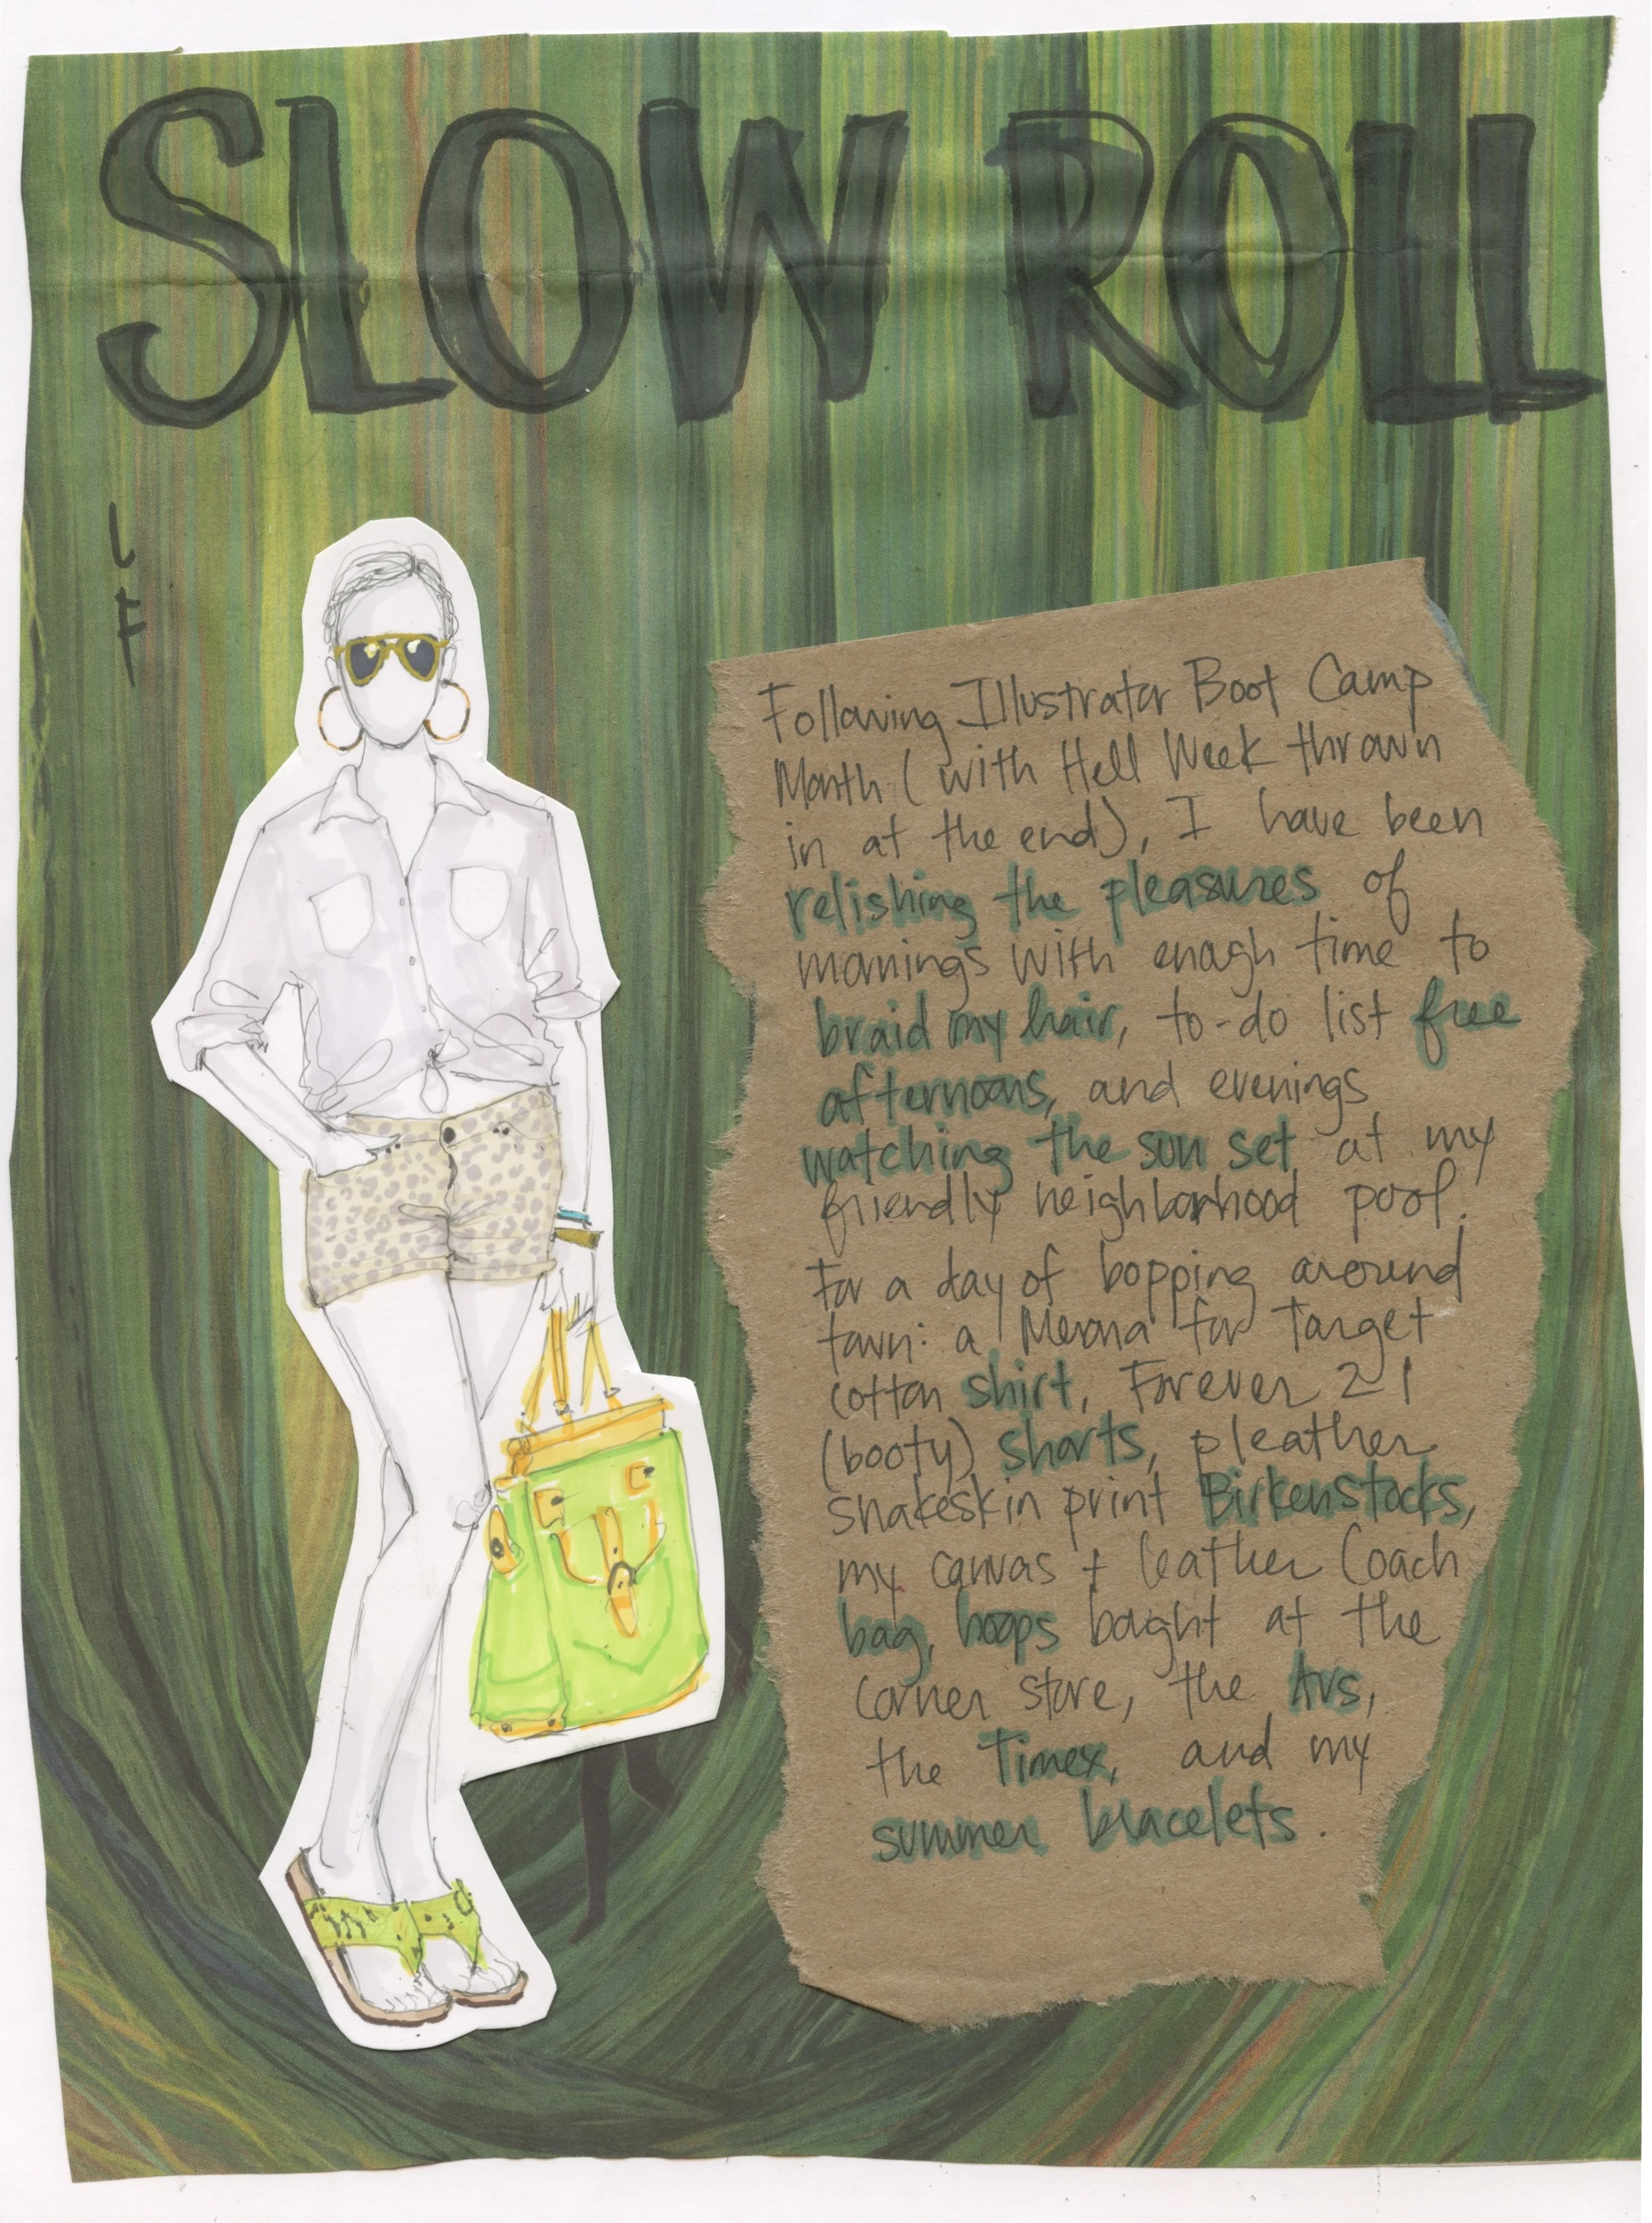 SLOW ROLL
LF
Following Illustrator Boot Camp
Month (with Hell Week thrown
in at the end), I have been
relishing the pleasures of
mornings with enough time to
braid my hair, to-do list free
afternoons, and evenings
watching the sun set at my
friendly neighborhood pool.
For a day of bopping around
town: a Merona for Target
cotton shirt, Forever 21
(booty) shorts, pleather
snakeskin print Birkenstocks,
my canvas + leather Coach
bag, hoops bought at the
corner store, the Avs,
the Timex, and my
summer bracelets.